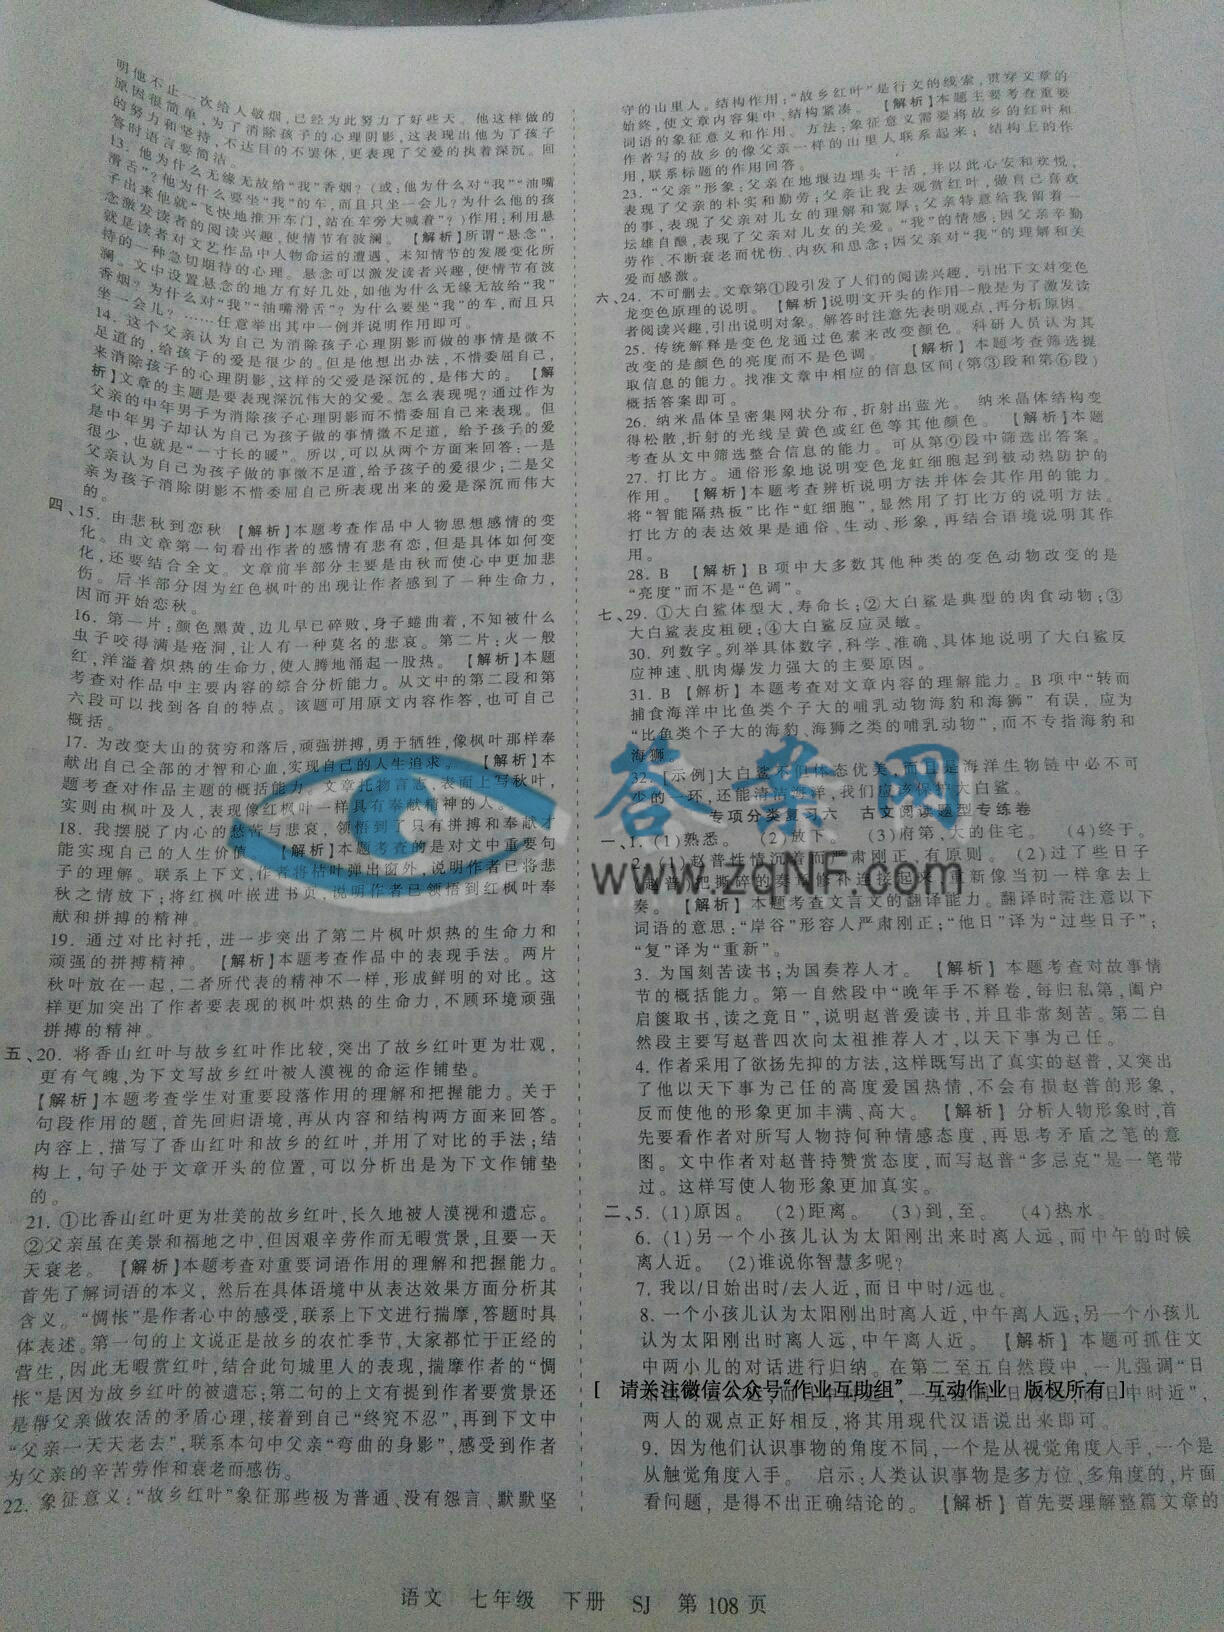 明他不止一次给人敬烟,已经为此努力了好些天。他这样做的
原因很简单,为了消除孩子的心理阴影,这表现出他为了孩子
的努力和坚持,不达目的不罢休,更表现了父爱的执着深沉。回
答时语言要简洁。
13. 他为什么无缘无故给“我”香烟?(或:他为什么对“我”“油嘴
滑舌”?他为什么要坐“我”的车,而且只坐一会儿?为什么他的孩
子出来他就“飞快地推开车门,站在车旁大喊着”?)作用:利用悬
念激发读者的阅读兴趣,使情节有波澜。 【解析】所谓“悬念”,
就是读者对文艺作品中人物命运的遭遇、未知情节的发展变化所
持的一种急切期待的心理。悬念可以激发读者兴趣,使情节有波
澜。文中设置悬念的地方有好几处,如他为什么无缘无故给“我”
香烟?为什么对“我”“油嘴滑舌”?为什么要坐“我”的车,而且只
坐一会儿?……任意举出其中一例并说明作用即可。
14. 这个父亲认为自己为消除孩子心理阴影而做的事情是微不
足道的,给孩子的爱是很少的。但是他想出办法,不惜委屈自己,
来消除孩子的心理阴影,这样的父爱是深沉的,是伟大的。 【解
析】文章的主题是要表现深沉伟大的父爱。怎么表现呢?通过作为
父亲的中年男子为消除孩子心理阴影而不惜委屈自己来表现。但
是中年男子却认为自己为孩子做的事情微不足道,给予孩子的爱
很少,也就是“一寸长的暖”。所以,可以从两个方面来回答:一是
父亲认为自己为孩子做的事微不足道,给予孩子的爱很少;二是父
亲为孩子消除阴影不惜委屈自己所表现出来的爱是深沉而伟大
的。
四、15. 由悲秋到恋秋 【解析】本题考查作品中人物思想感情的变
化。由文章第一句看出作者的感情有悲有恋,但是具体如何变
化,还要结合全文。文章前半部分主要是由秋而使心中更加悲
伤。后半部分因为红色枫叶的出现让作者感到了一种生命力,
因而开始恋秋。
16. 第一片:颜色黑黄,边儿早已碎败,身子蜷曲着,不知被什么
虫子咬得满是疮洞,让人有一种莫名的悲哀。第二片:火一般
红,洋溢着炽热的生命力,使人腾地涌起一股热。 【解析】本题
考查对作品中主要内容的综合分析能力。从文中的第二段和第
六段可以找到各自的特点。该题可用原文内容作答,也可自己
概括。
17. 为改变大山的贫穷和落后,顽强拼搏,勇于牺牲,像枫叶那样奉
献出自己全部的才智和心血,实现自己的人生追求。 【解析】本
题考查对作品主题的概括能力。文章托物言志,表面上写秋叶,
实则由枫叶及人,表现像红枫叶一样具有奉献精神的人。
18. 我摆脱了内心的愁苦与悲哀,领悟到了只有拼搏和奉献才
能实现自己的人生价值 【解析】本题考查的是对文中重要句
子的理解。联系上下文,作者将枯叶弹出窗外,说明作者已将悲
秋之情放下;将红枫叶嵌进书页,说明作者已领悟到红枫叶奉
献和拼搏的精神。
19. 通过对比衬托,进一步突出了第二片枫叶炽热的生命力和
顽强的拼搏精神。 【解析】本题考查作品中的表现手法。两片
秋叶放在一起,二者所代表的精神不一样,形成鲜明的对比。这
样更加突出了作者要表现的枫叶炽热的生命力,不顾环境顽强
拼搏的精神。
五、20. 将香山红叶与故乡红叶作比较,突出了故乡红叶更为壮观,
更有气魄,为下文写故乡红叶被人漠视的命运作铺垫。
【解析】本题考查学生对重要段落作用的理解和把握能力。关于
句段作用的题,首先回归语境,再从内容和结构两方面来回答。
内容上,描写了香山红叶和故乡的红叶,并用了对比的手法;结
构上,句子处于文章开头的位置,可以分析出是为下文作铺垫
的。
21. ①比香山红叶更为壮美的故乡红叶,长久地被人漠视和遗忘。
②父亲虽在美景和福地之中,但因艰辛劳作而无暇赏景,且要一天
天衰老。 【解析】本题考查对重要词语作用的理解和把握能力。
首先了解词语的本义,然后在具体语境中从表达效果方面分析其
含义。“惆怅”是作者心中的感受,联系上下文进行揣摩,答题时具
体表述。第一句的上文说正是故乡的农忙季节,大家都忙于正经的
营生,因此无暇赏红叶,结合此句城里人的表现,揣摩作者的“惆
怅”是因为故乡红叶的被遗忘;第二句的上文有提到作者要赏景还
是帮父亲做农活的矛盾心理,接着到自己“终究不忍”,再到下文中
“父亲一天天老去”,联系本句中父亲“弯曲的身影”,感受到作者
为父亲的辛苦劳作和衰老而感伤。
22. 象征意义:“故乡红叶”象征那些极为普通、没有怨言、默默坚
守的山里人。结构作用:“故乡红叶”是行文的线索,贯穿文章的
始终,使文章内容集中、结构紧凑。 【解析】本题主要考查重要
词语的象征意义和作用。方法:象征意义需要将故乡的红叶和
作者写的故乡的像父亲一样的山里人联系起来;结构上的作
用,联系标题的作用回答。
23. “父亲”形象:父亲在地堰边埋头干活,并以此心安和欢悦,
表现了父亲的朴实和勤劳;父亲让我去观赏红叶,做自己喜欢
的事,表现了父亲对儿女的理解和宽厚;父亲特意给我留着一
坛雄自酿,表现了父亲对儿女的关爱。“我”的情感:因父亲辛勤
劳作、不断衰老而忧伤、内疚和思念;因父亲对“我”的理解和关
爱而感激。
六、24. 不可删去。文章第①段引发了人们的阅读兴趣,引出下文对变色
龙变色原理的说明。 【解析】说明文开头的作用一般是为了激发读
者阅读兴趣,引出说明对象。解答时注意先表明观点,再分析原因。
25. 传统解释是变色龙通过色素来改变颜色。科研人员认为其
改变的是颜色的亮度而不是色调。 【解析】本题考查筛选提
取信息的能力。找准文章中相应的信息区间(第③段和第⑥段)
概括答案即可。
26. 纳米晶体呈密集网状分布,折射出蓝光。 纳米晶体结构变
得松散,折射的光线呈黄色或红色等其他颜色。 【解析】本题
考查从文中筛选整合信息的能力。 可从第⑨段中筛选出答案。
27. 打比方。通俗形象地说明变色龙虹细胞起到被动热防护的
作用。 【解析】本题考查辨析说明方法并体会其作用的能力。
将“智能隔热板”比作“虹细胞”,显然用了打比方的说明方法。
打比方的表达效果是通俗、生动、形象,再结合语境说明其作
用。
28. B 【解析】B 项中大多数其他种类的变色动物改变的是
“亮度”而不是“色调”。
七、29. ①大白鲨体型大,寿命长;②大白鲨是典型的肉食动物;③
大白鲨表皮粗硬;④大白鲨反应灵敏。
30. 列数字。列举具体数字,科学、准确、具体地说明了大白鲨反
应神速、肌肉爆发力强大的主要原因。
31. B 【解析】本题考查对文章内容的理解能力。B 项中“转而
捕食海洋中比鱼类个子大的哺乳动物海豹和海狮” 有误,应为
“比鱼类个子大的海豹、海狮之类的哺乳动物”,而不专指海豹和
海狮。
32. [示例]大白鲨不但体态优美,而且是海洋生物链中必不可
少的一环,还能清洁海洋,我们应该保护大白鲨。
专项分类复习六 古文阅读题型专练卷
一、1. (1)熟悉。 (2)放下。 (3)府第,大的住宅。 (4)终于。
2. (1)赵普性情沉着而严肃刚正,有原则。 (2)过了些日子
赵普把撕碎的奏折修补连接起来,重新像当初一样拿去上
奏。 【解析】本题考查文言文的翻译能力。翻译时需注意以下
词语的意思:“岸谷”形容人严肃刚正;“他日”译为“过些日子”;
“复”译为“重新”。
3. 为国刻苦读书;为国奏荐人才。 【解析】本题考查对故事情
节的概括能力。第一自然段中“晚年手不释卷,每归私第,阖户
启箧取书,读之竟日”,说明赵普爱读书,并且非常刻苦。第二自
然段主要写赵普四次向太祖推荐人才,以天下事为己任。
4. 作者采用了欲扬先抑的方法,这样既写出了真实的赵普,又突出
了他以天下事为己任的高度爱国热情,不会有损赵普的形象,
反而使他的形象更加丰满、高大。 【解析】分析人物形象时,首
先要看作者对所写人物持何种情感态度,再思考矛盾之笔的意
图。文中作者对赵普持赞赏态度,而写赵普“多忌克”是一笔带
过。这样写使人物形象更加真实。
二、5. (1)原因。 (2)距离。 (3)到,至。 (4)热水。
6. (1)另一个小孩儿认为太阳刚出来时离人远,而中午的时候
离人近。 (2)谁说你智慧多呢?
7. 我以/日始出时/去人近,而日中时/远也。
8. 一个小孩儿认为太阳刚出时离人近,中午离人远;另一个小孩儿
认为太阳刚出时离人远,中午离人近。 【解析】本题可抓住文
中两小儿的对话进行归纳。在第二至五自然段中,一儿强调“日
[ 请关注微信公众号“作业互助组” 互动作业 版权所有 ]
两人的观点正好相反,将其用现代汉语说出来即可。
9. 因为他们认识事物的角度不同,一个是从视觉角度入手,一个是
从触觉角度入手。 启示:人类认识事物是多方位、多角度的,片面
看问题,是得不出正确结论的。 【解析】首先要理解整篇文章的
答案网
www.zqNF.com
语文 七年级 下册 SJ 第 108 页